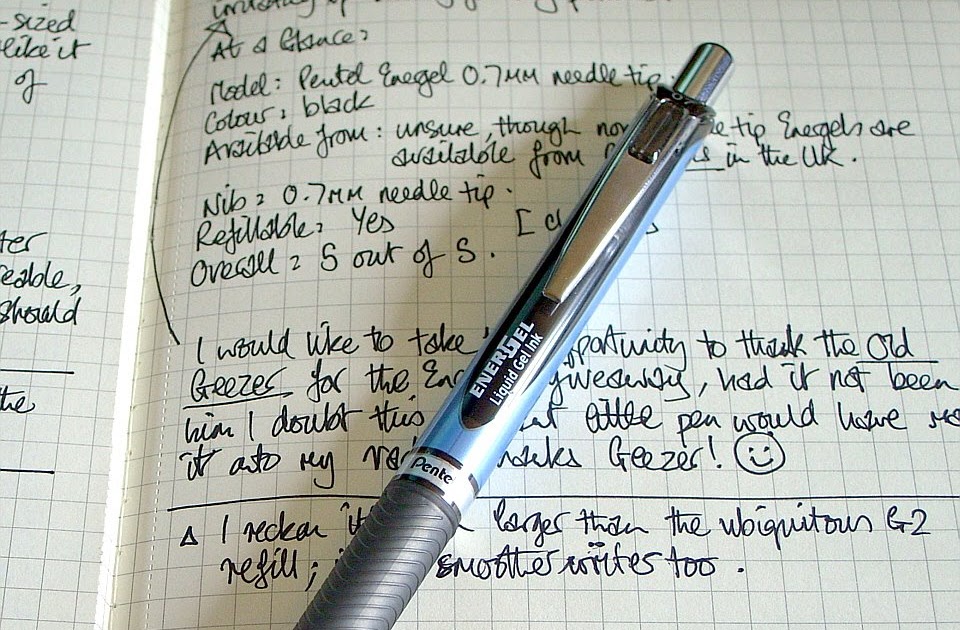 -sized
like it
of
eable,
should
the
At a Glance:
Model: Pentel Energel 0.7MM needle tip.
Colour: black
Available from: unsure, though tip Energels are
available from in the UK.
Nib: 0.7MM needle tip.
Refillable: Yes [
Overall: 5 out of 5.
I would like to take opportunity to thank the Old
Geezer for the giveaway, had it not been
him I doubt this little pen would have
it into my Geezer! ☺
Δ I reckon larger than the ubiquitous G2
refill; smoother writer too.
ENERGEL
Liquid Gel Ink
Pente